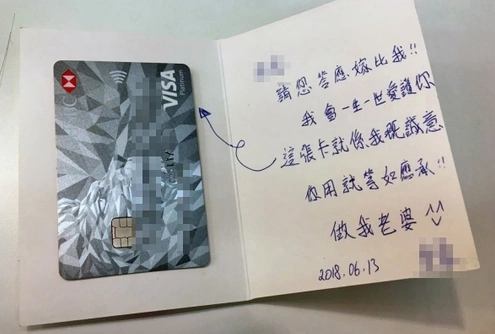 VISA
Platinum
請您答應嫁比我!!
我會一生一世愛護你
這張卡就係我嘅誠意
你用就等如應承!!
做我老婆
2018.06.13